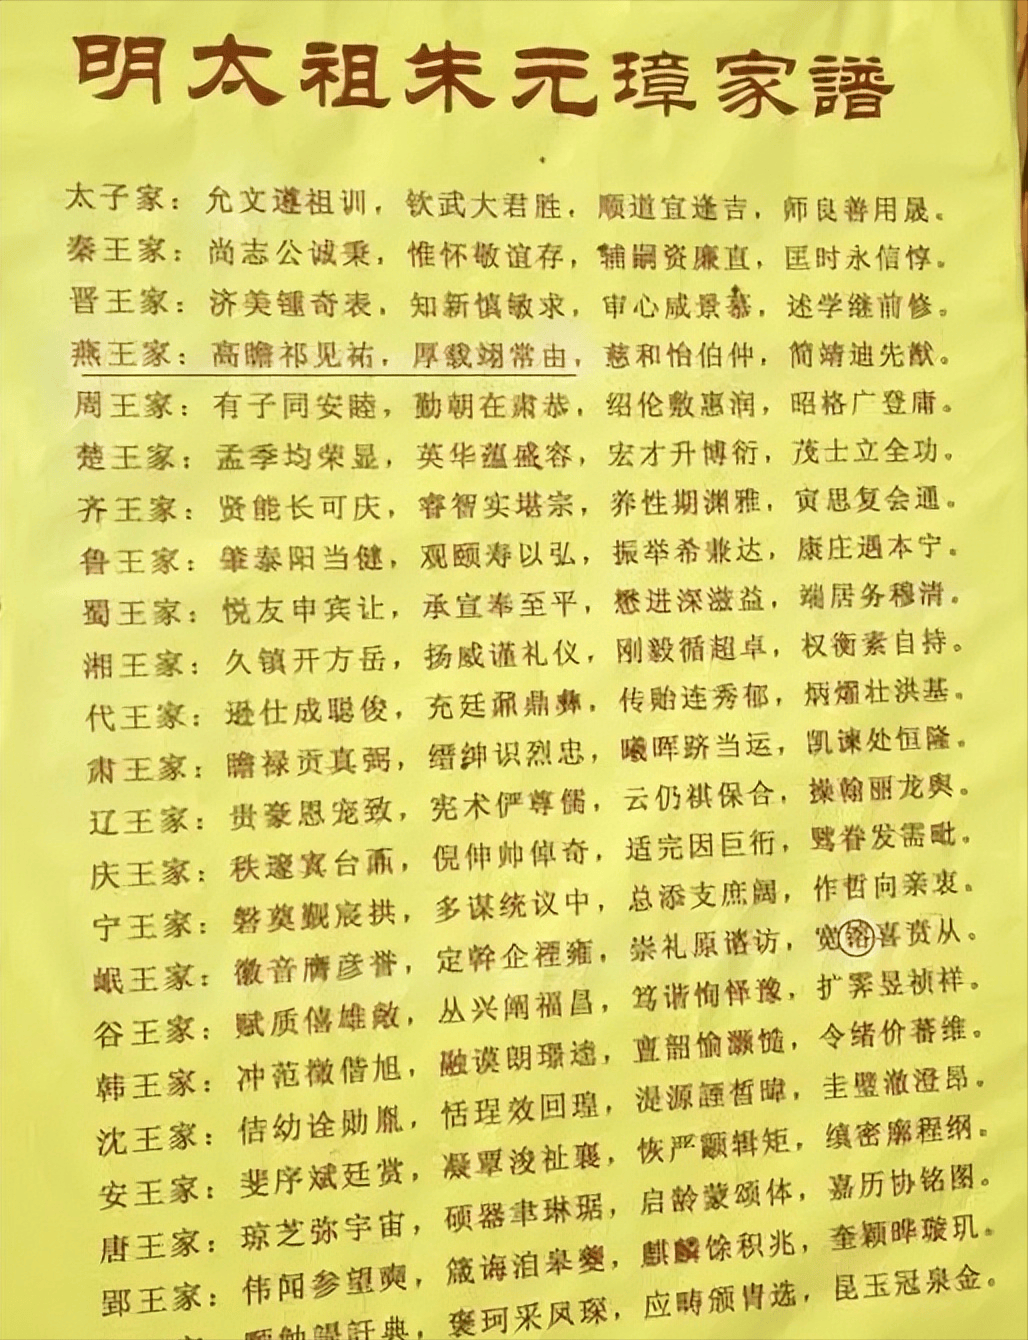 明太祖朱元璋家譜
太子家：允文遵祖训，钦武大君胜，顺道宜逢吉，师良善用晟。
秦王家：尚志公诚秉，惟怀敬谊存，辅嗣资廉直，匡时永信惇。
晋王家：济美锺奇表，知新慎敏求，审心咸景慕，述学继前修。
燕王家：高瞻祁见祐，厚载翊常由，慈和怡伯仲，简靖迪先猷。
周王家：有子同安睦，勤朝在肃恭，绍伦敷惠润，昭格广登庸。
楚王家：孟季均荣显，英华蕴盛容，宏才升博衍，茂士立全功。
齐王家：贤能长可庆，睿智实堪宗，养性期渊雅，寅思复会通。
鲁王家：肇泰阳当健，观颐寿以弘，振举希兼达，康庄遇本宁。
蜀王家：悦友申宾让，承宣奉至平，懋进深滋益，端居务穆清。
湘王家：久镇开方岳，扬威谨礼仪，刚毅循超卓，权衡素自持。
代王家：逊仕成聪俊，充廷鼐鼎彝，传贻连秀郁，炳燿壮洪基。
肃王家：瞻禄贡真弼，缙绅识烈忠，曦晖跻当运，凯谏处恒隆。
辽王家：贵豪恩宠致，宪术俨尊儒，云仍祺保合，操翰丽龙舆。
庆王家：秩邃寘台鼐，倪伸帅倬奇，适完因巨衍，骘眷发需毗。
宁王家：磐奠觐宸拱，多谋统议中，总添支庶阔，作哲向亲衷。
岷王家：徽音膺彦誉，定幹企禋雍，崇礼原谘访，宽镕喜贲从。
谷王家：赋质僖雄敞，丛兴阐福昌，笃谐恂怿豫，扩霁昱祯祥。
韩王家：冲范徵偕旭，融谟朗璟逵，亶韶愉灏慥，令绪价蕃维。
沈王家：佶幼诠勋胤，恬珵效回瑝，湜源諲晳暐，圭璧澈澄昂。
安王家：斐序斌廷赏，凝覃浚祉襄，恢严颙辑矩，缜密廓程纲。
唐王家：琼芝弥宇宙，硕器聿琳琚，启龄蒙颂体，嘉历协铭图。
郢王家：伟闻参望奭，箴诲洎皋夔，麒麟馀积兆，奎颖晔璇玑。
典，褒珂采凤琛，应畴颁胄选，昆玉冠泉金。